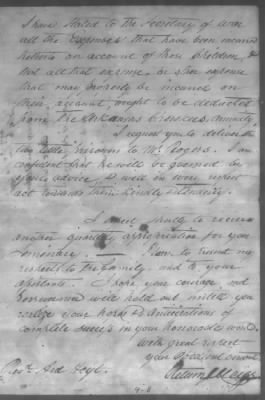 I have stated to the Secretary of War
all the expenses that have been incurred
hitherto on account of those Children, &
that all that expense, or other expense
that may properly be incurred on
their account, ought to be deducted
from the Arkansas Cherokees annuity
I request you to deliver the
two little prisoners to Mr. Rogers. I am
confident that he will be governed by
your advice & will in every respect
act towards them kindly & tenderly.
I must shortly to receive
another quarterly appropriation for your
Seminary. I am to present my
respects to the family, and to your
assistants. I hope your courage and
perseverance will hold out until you
realize your hopes & anticipations of
complete success in your honorable work.
With great respect
your Obedient servant
Return J. Meigs
Revd. Ard Hoyt.
9-8